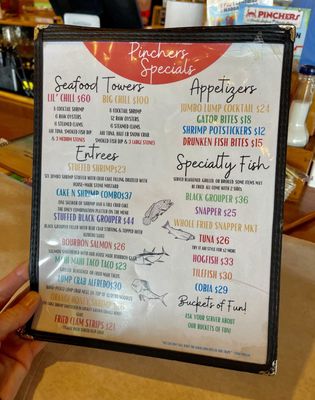 PINCHERS
Pinchers
Specials
Seafood Towers
LIL' CHILL $60
BIG CHILL $100
6 COCKTAIL SHRIMP
6 RAW OYSTERS
6 STEAMED CLAMS
AHI TUNA, SMOKED FISH DIP
& 2 MEDIUM STONES
8 COCKTAIL SHRIMP
12 RAW OYSTERS
6 STEAMED CLAMS
AHI TUNA, HALF LB SNOW CRAB
SMOKED FISH DIP & 2 LARGE STONES
Appetizers
JUMBO LUMP COCKTAIL $24
GATOR BITES $18
SHRIMP POTSTICKERS $12
DRUNKEN FISH BITES $15
Entrees
STUFFED SHRIMP $23
SIX JUMBO SHRIMP STUFFED WITH CRAB CAKE FILLING DRIZZLED WITH
HOUSE-MADE STONE MUSTARD
CAKE N SHRIMP COMBO $37
STUFFED BLACK GROUPER $44
BLACK GROUPER FILLED WITH BLUE CRAB STUFFING & TOPPED WITH
BOURBON SALMON $26
MAHI MAHI TACO $23
LUMP CRAB ALFREDO $30
FRIED CLAM STRIPS $21
Specialty Fish
SERVED BLACKENED, GRILLED OR BROILED. SOME ITEMS MAY
BE FRIED. ALL COME WITH 2 SIDES.
BLACK GROUPER $36
SNAPPER $25
WHOLE FRIED SNAPPER MKT
TUNA $26
HOGFISH $33
TILEFISH $30
COBIA $29
Buckets of Fun!
ASK YOUR SERVER ABOUT
OUR BUCKETS OF FUN!